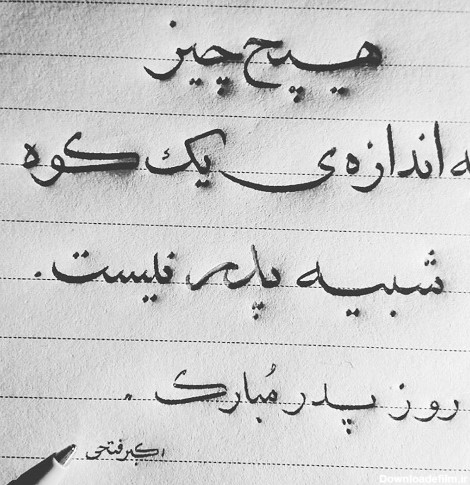 هیچ چیز
به اندازه‌ی یک کوه
شبیه پدر نیست.
روز پدر مُبارک.
اکبر فتحی
Downloadefilm.ir